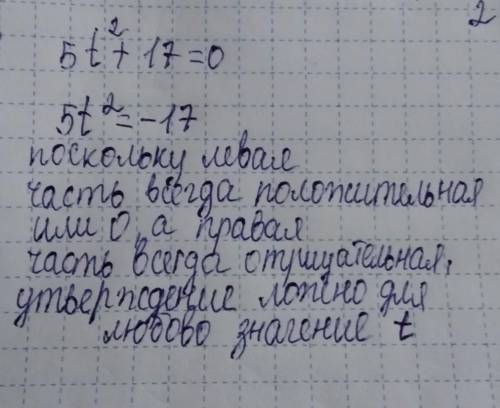 2
5t²+17=0
5t²=-17
поскольку левая
часть всегда положительная
или 0, а правая
часть всегда отрицательная,
утверждение ложно для
любово значение t